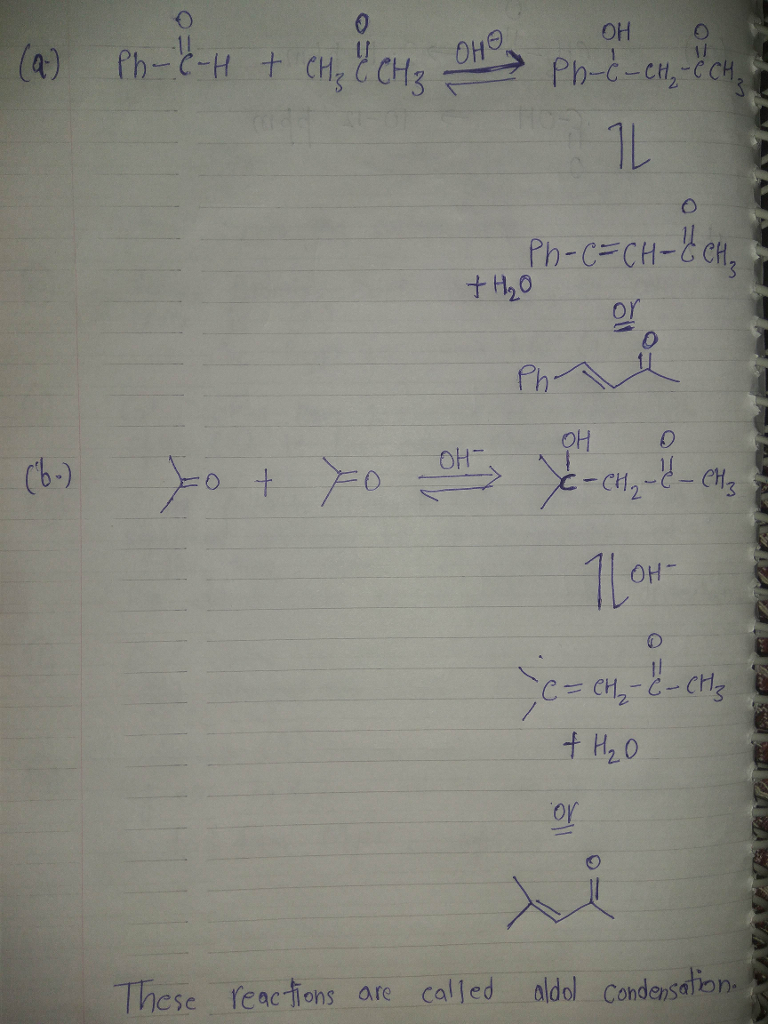 (a.) Ph-C-H + CH3 C CH3 OH⊖ Ph-C-CH2-C CH3
O O OH O
Ph-C=CH-C CH3
O
+ H2O
or
Ph O
(b.) =O + =O OH- C-CH2-C-CH3
OH O
OH-
O
C=CH2-C-CH3
+ H2O
or
O
These reactions are called aldol condensation.